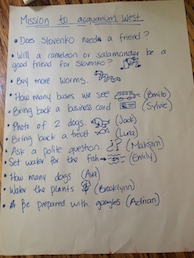 Mission to acquarium West
• Does Slovenko need a friend?
• Will a camelion or salamander be a
good friend for Slovenko?
• Buy more worms.
• How many buses we see (Emilio)
• Bring back a business card (Sylvie)
• Photo of 2 dogs. (Jack)
• Bring back a treat (Luna)
• Ask a polite question. ?? (Maksim)
• Set water for the fish (Emily)
• How many dogs (Ava)
• Water the plants (Brooklynn)
• Be prepared with googles (Adrian)